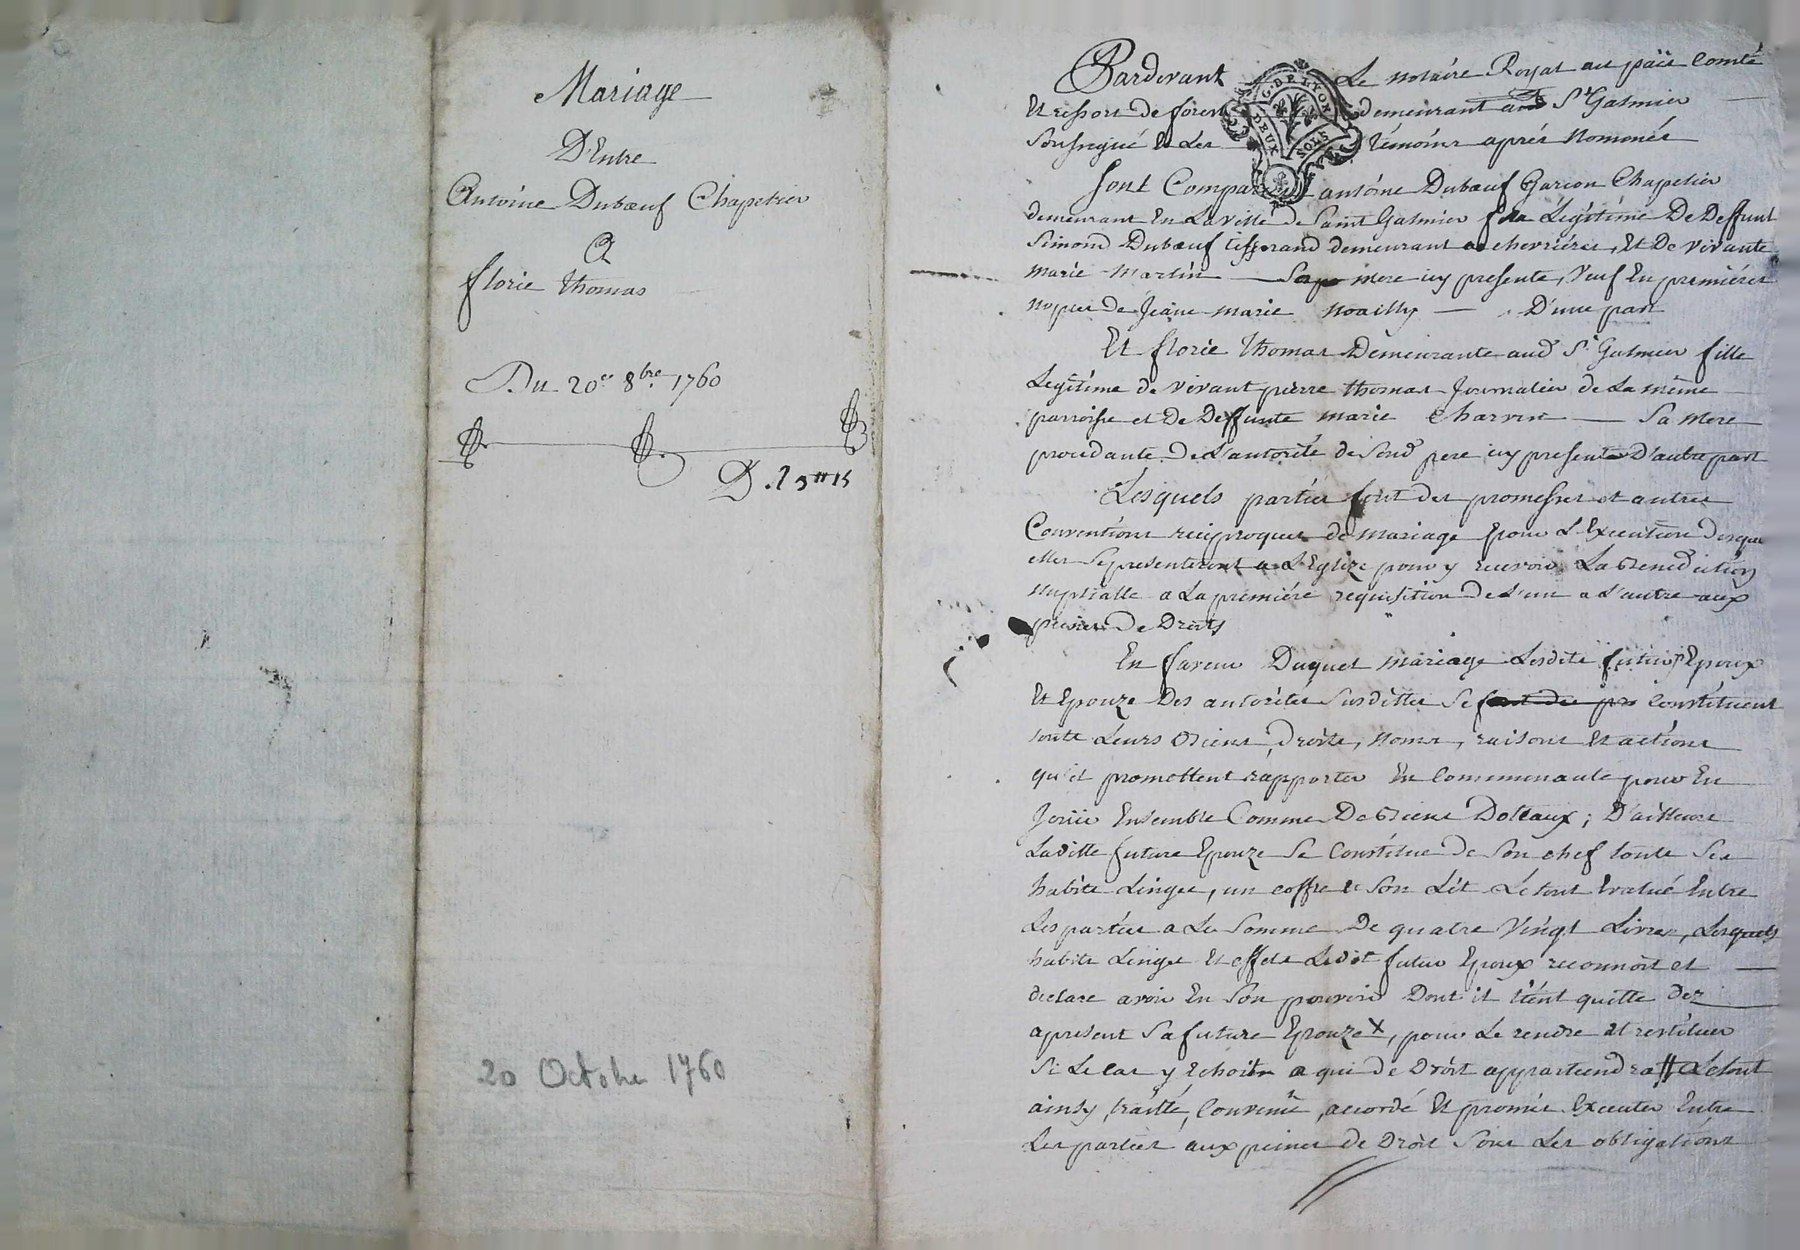 Mariage
D'Entre
Antoine Dubœuf Chapelier
Et
florie thomas
Du 20e 8bre 1760
20 Octobre 1760
Pardevant Le notaire Royal au païs Comté
Et ressort de forest demeurant aud St Galmier
Soussigné Et Les témoins aprés Nommés
G. DE LYON
DEUX SOLS
Sont Comparus antoine Dubœuf Garcon Chapelier
demeurant En La ville de Saint Galmier fils Légitime De Deffunt
Simond Dubœuf tisserand demeurant a chevriéres, Et De vivante
marie martin Sa mere icy presente, Veuf En premiéres
nopces de Jeane marie Noailly D'une part
Et florie thomas Demeurante aud St Galmier fille
Legitime de vivant pierre thomas Journalier de La même
parroisse et De Deffunte marie Charvin Sa Mere
procedante De L'autorité de Sond pere icy present D'autre part
Lesquels parties font des promesses et autres
Conventions reciproques de mariage pour L'Execution desqu
elles Se presenteront a L'Eglize pour y recevoir La Benediction
nuptialle a La premiére requisition De L'un a L'autre aux
peines De Droits
En faveur Duquel mariage Lesdits futurs Epoux
Et Epouze Des autorités Susdittes Se font des pr Constituent
touts Leurs Biens, Droits, Noms, raisons Et actions
qu'ils promettent rapporter En Communauté pour En
Joüir Ensemble Comme De Biens Dotaux; D'ailleurs
Laditte future Epouze Se Constitue de Son chef touts Ses
habits Linges, un coffre et Son Lit Le tout Evalué Entre
Les parties a La Somme De quatre Vingt Livres, Lesquels
habits Linges Et effets Ledit futur Epoux reconnoit et
declare avoir En Son pouvoir Dont il tient quitte dez
apresent Sa future Epouze X, pour Le rendre et restituer
Si Le cas y Echoit a qui de Droit appartiendra // Le tout
ainsy traitté, Convenu, accordé Et promis Executer Entre
Les parties aux peines de Droit Sous Les obligations